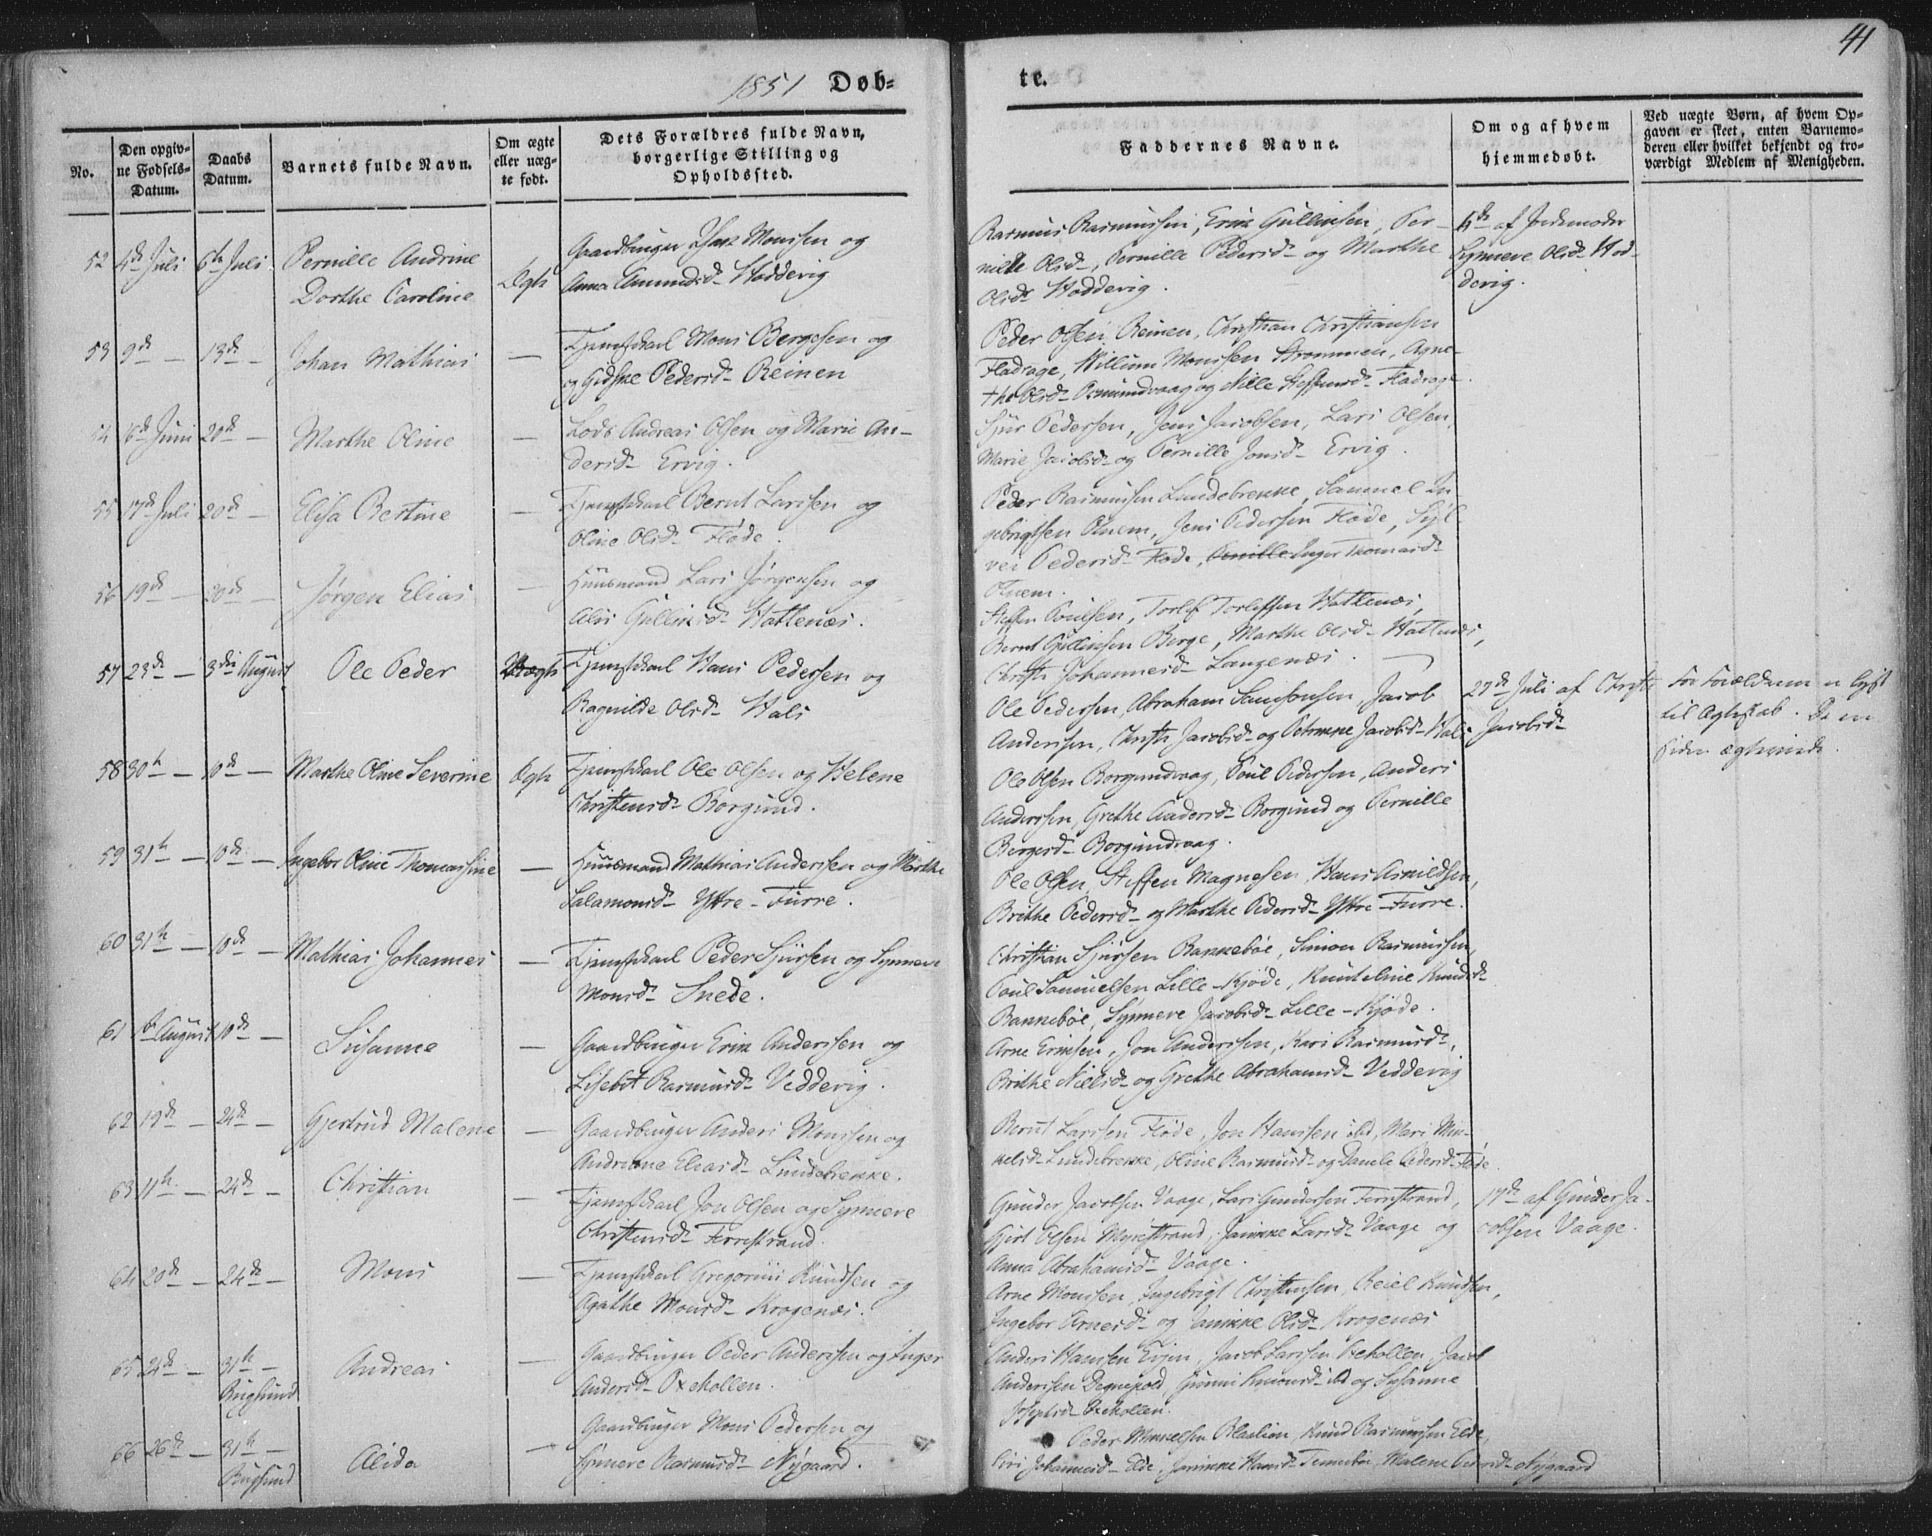 1851 Døb=
te.
41
No.
Den opgiv-
ne Fødsels-
Datum.
Daabs
Datum.
Barnets fulde Navn.
Om ægte
eller uæg-
te født.
Dets Forældres fulde Navn,
borgerlige Stilling og
Opholdssted.
Faddernes Navne.
Om og af hvem
hjemmedøbt.
Ved uægte Børn, af hvem Op-
gaven er skeet, enten Barnemo-
deren eller hvilket bekjendt og tro-
værdigt Medlem af Menigheden.
52 4de Juli 6te Juli Pernille Andrine
Dorthe Caroline
Ægte
Gaardbruger Monssen og
Anna Amundsd- Hoddevig
Rasmus Rasmussen, Erik Gullaksen, Per-
nille Olsd-, Pernille Pedersd- og Marthe
Olsd- Hoddevig.
af Jordemoder
Synneve Olsd- Hod-
devig.
53 9de — 13de — Johan Mathias —
Mons Bergesen og
og Gidske Pedersd- Reinen
Peder Olsen Reinen, Christian Christiansen
Fladrage, Willum Monssen Strømmen, Agne-
the Olsd- Osmundvaag og Nille Steffensd- Fladrage.
54 6te Juni 20de — Marthe Oline —
Lods Andreas Olsen og Marie An-
dersd- Ervig.
Sjur Pedersen, Jens Jacobsen, Lars Olsen,
Marie Jacobsd- og Pernille Jonsd- Ervig.
55 17de Juli 20de — Elisa Bertine —
Bernt Larssen og
Oline Olsd- Fløde.
Peder Rasmussen Lundebrekke, Sammel In
gebrigtsen Otnem, Jens Pedersen Fløde, Syl-
vei Pedersd- Fløde, Pernille Inger Thomasd-
Otnem.
56 19de — 20de — Jørgen Elias —
Huusmand Lars Jørgensen og
Alis Gullaksd- Hatlenæs.
Steffen Poulsen, Torlef Torlefssen Hatlenæs,
Bernt Gullaksen Berge, Marthe Olsd- Hatlenæs,
Christi Johannesd- Langenæs.
57 23de — 3die August Ole Peder Uægte
Hans Pedersen og
Ragnilde Olsd- Hals
Ole Pedersen, Abraham Samsonsen, Jacob
Anderssen, Christi Jacobsd- og Jacobsd- Hals
27de Juli af Christi
Jacobsd-
For Forældrene er lyst
til Ægteskab. De ere
siden ægteviede.
58 30te — 10de — Marthe Oline Severine Ægte
Ole Olsen og Helene
Christensd- Borgund.
Ole Olsen Borgundvaag, Poul Pedersen, Anders
Anderssen, Grethe Andersd- Borgund og Pernille
Bergesd- Borgundvaag.
59 31te — 10de — Ingebor Oline Thomassine —
Huusmand Mathias Anderssen og Marthe
Salamonsd- Ytre-Furre.
Ole Olsen, Steffen Magnesen, Hans Arnildsen,
Brithe Pedersd- og Marthe Pedersd- Ytre-Furre.
60 31te — 10de — Mathias Johannes —
Peder Sjursen og Synneve
Monsd- Snede.
Christian Sjursen Bakkebøe, Simon Rasmussen,
Poul Samuelsen Lille-Kjøde, Knuteline Knudsd-
Bakkebøe, Synneve Jacobsd- Lille-Kjøde.
61 August 10de — Susanne —
Gaardbruger Erik Anderssen og
Lisebet Rasmusd- Veddevig.
Arne Eriksen, Jon Anderssen, Kari Rasmusd-,
Brithe Nielsd- og Grethe Abrahamsd- Veddevig
62 19de — 24de — Gjertrud Malene —
Gaardbruger Anders Monssen og
Andrikke Eliasd- Lundebrekke.
Bernt Larssen Fløde, Jon Hanssen ibd, Mari Mik-
kelsd- Lundebrekke, Oline Rasmusd- og Pedersd- Fløde.
63 11te — 24de — Christian —
Jon Olsen og Synneve
Christensd- Furrestrand.
Gunder Jacobsen Vaage, Lars Gundersen Furrestrand,
Gjert Olsen Myrestrand, Janikke Larsd- Vaage og
Anna Abrahamsd- Vaage.
17de af Gunder Ja-
cobsen Vaage.
64 20de — 24de — Mons —
Gregorius Knudsen og
Agathe Monsd- Krogenæs.
Arne Monssen, Ingebrigt Christensen, Reiel Knudsen,
Ingebor Arnesd- og Janikke Olsd- Krogenæs
65 31te —
Rugsund
Andreas —
Gaardbruger Peder Anderssen og Inger
Andersd- Oxekollen.
Anders Hanssen Eijen, Jacob Larssen Oxekollen, Jacob
Anderssen Degnepold, Gunni Simonsd- ibd og Susanne
Josephsd- Oxekollen.
66 26de — 31te —
Rugsund
Alida —
Gaardbruger Mons Pedersen og
Synneve Rasmusd- Nygaard.
Peder Mikkelsen Blaalien, Knud Rasmussen Elde,
Siri Johannesd- Elde, Janikke Hansd- Malene Pedersd- Nygaard